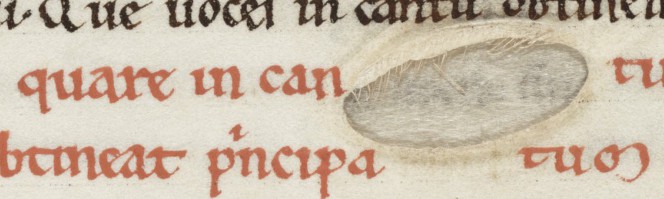 Que uoces in cantu obtine
quare in can tu
btineat p'ncipa tum